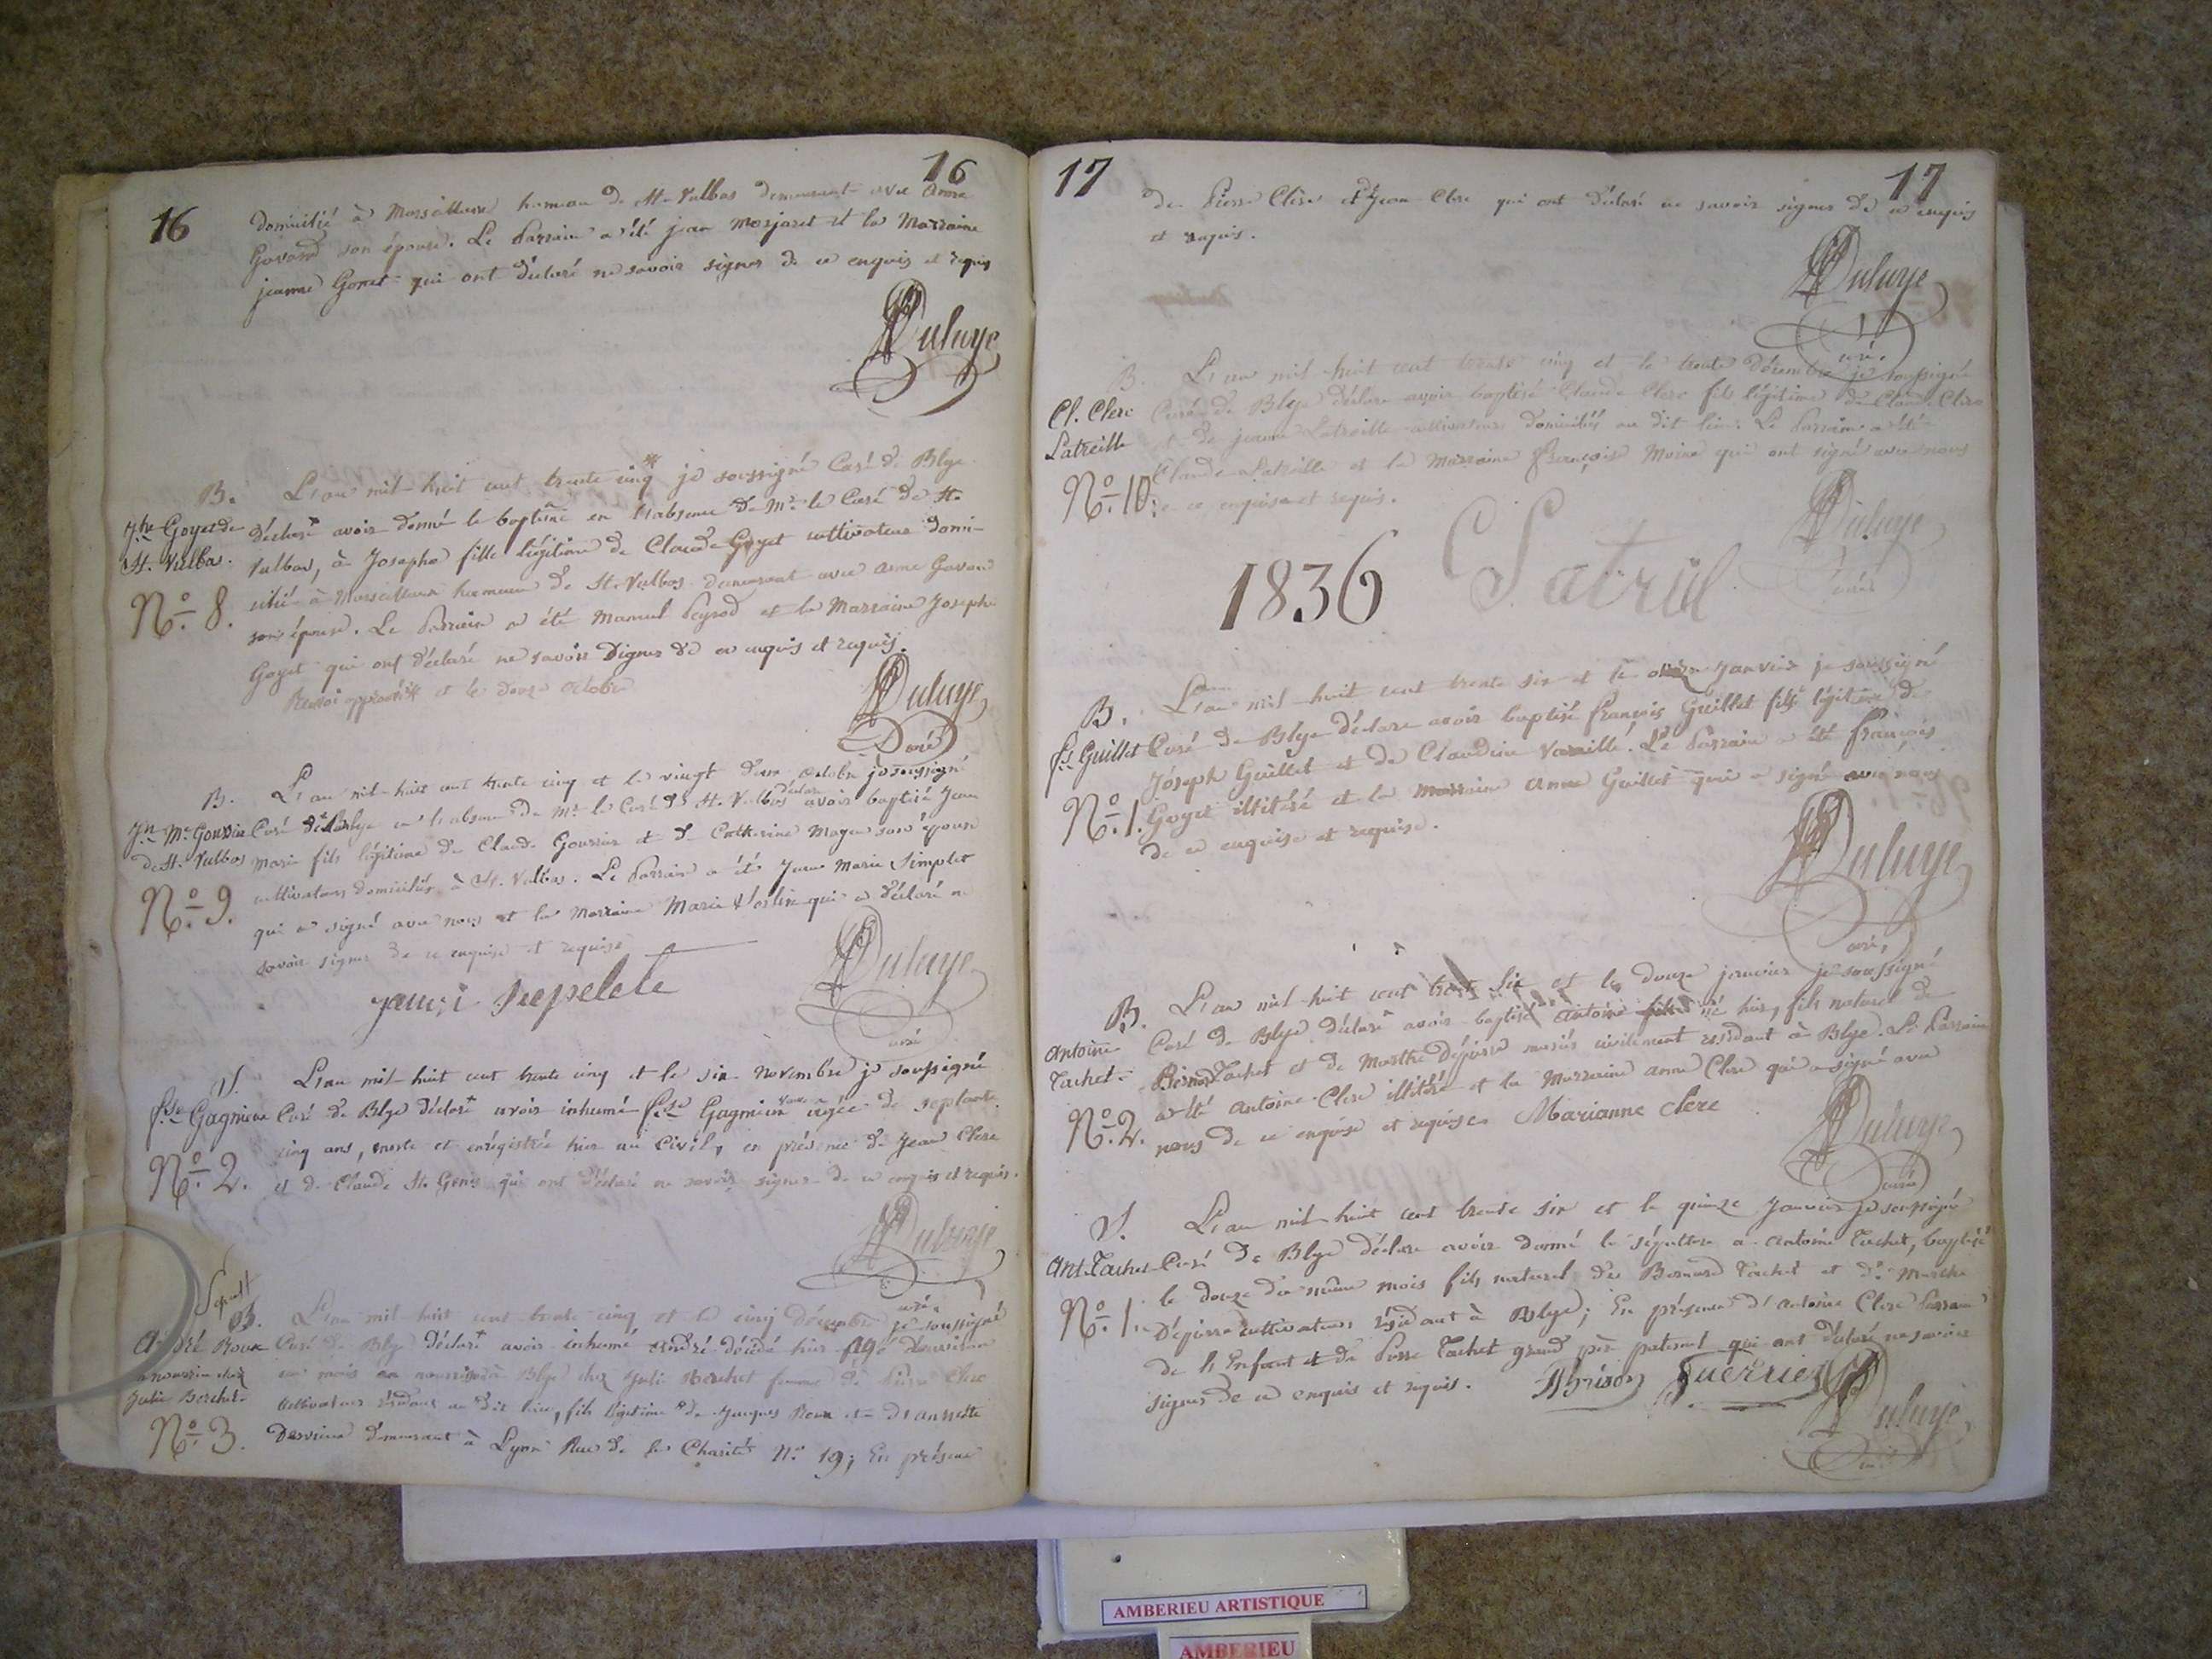 16
16
domicilié à Marcilleux hameau de St. Vulbas demeurant avec anne
Govand son épouse. Le Parrain a été jean Morjaret et la Marraine
jeanne Goyet qui ont déclaré ne savoir signer de ce enquis et requis
Duluye
B. L'an mil huit cent trente cinq * je soussigné Curé de Blye
Jhe Goyet de
St. Vulbas.
No. 8.
déclare avoir donné le baptême en l'absence de Mr. le Curé de St.
Vulbas, à Josephe fille légitime de Claude Goyet cultivateur domi-
cilié à Marcilleux hameau de St. Vulbas demeurant avec anne Govand
son épouse. Le Parrain a été Manuel Peysod et la Marraine Josephe
Goyet qui ont déclaré ne savoir signer de ce enquis et requis.
Renvoi approuvé * et le douze octobre
Duluye
Curé
B. L'an mil huit cent trente cinq et le vingt deux octobre je soussigné
Jn. Me. Gourrin
de St. Vulbas
No. 9.
Curé de Blye en l'absence de Mr. le Curé de St. Vulbas déclare avoir baptisé Jean
marie fils légitime de Claude Gourrin et de Catherine Moyen son épouse
cultivateurs domiciliés à St. Vulbas. Le Parrain a été Jean Marie Simplet
qui a signé avec nous et la Marraine Marie qui a déclaré ne
savoir signer de ce enquise et requise
Duluye
curé
S. L'an mil huit cent trente cinq et le six novembre je soussigné
fse Gagnieux
No. 2.
Curé de Blye déclare avoir inhumé fse Gagnieux veuve âgée de septante
cinq ans, morte et enrégistrée hier au Civil, en présence de Jean Clerc
et de Claude St. Genis qui ont déclaré ne savoir signer de ce enquis et requis.
Duluye
curé
Sepult
B. L'an mil huit cent trente cinq et le cinq Décembre je soussigné
André Roux
en nourrice chez
Julie Berchet
No. 3.
Curé de Blye déclare avoir inhumé André décédé hier âgé d'environ
un mois en nourrice à Blye chez Julie Berchet femme de Pierre Clerc
cultivateur résidant au dit lieu, fils légitime de Jacques Roux et d'annette
Dervieux demeurant à Lyon Rue de la Charité No. 19; En présence
17
17
de Pierre Clerc et de Jean Clerc qui ont déclaré ne savoir signer de ce enquis
et requis.
Duluye
curé.
B. L'an mil huit cent trente cinq et le trente décembre je soussigné
Cl. Clerc
Latreille
No. 10.
Curé de Blye déclare avoir baptisé Claude Clerc fils légitime de Claude Clerc
et de jeanne Latreille cultivateurs domiciliés au dit lieu. Le Parrain a été
Claude Latreille et la Marraine Françoise Moine qui ont signé avec nous
de ce enquise et requis.
Duluye
curé
1836
B. L'an mil huit cent trente six et le onze Janvier je soussigné
fs Guillet
No. 1.
Curé de Blye déclare avoir baptisé François Guillet fils légitime de
Joseph Guillet et de Claudine Varaille. Le Parrain a été François
Goyet illitéré et la marraine Anne Guillet qui a signé avec nous
de ce enquise et requise.
Duluye
curé,
B. L'an mil huit cent trente six et le douze janvier je soussigné
Antoine
Tachet
No. 2.
Curé de Blye déclare avoir baptisé antoine né hier, fils naturel de
Bernard Tachet et de Marthe Dépierre mariés civilement résidant à Blye. Le Parrain
a été Antoine Clerc illitéré et la Marraine anne Clerc qui a signé avec
nous de ce enquise et requise. Marianne clerc
Duluye
curé
S. L'an mil huit cent trente six et le quinze Janvier je soussigné
Ant. Tachet
No. 1.
Curé de Blye déclare avoir donné la sépulture à Antoine Tachet, baptisé
le douze du même mois fils naturel de Bernard Tachet et de Marthe
Dépierre cultivateurs résidant à Blye; En présence d'antoine Clerc Parrain
de l'Enfant et de Pierre Tachet grand père paternel qui ont déclaré ne savoir
signer de ce enquis et requis. Guerrier
Duluye
curé
AMBERIEU ARTISTIQUE
AMBERIEU